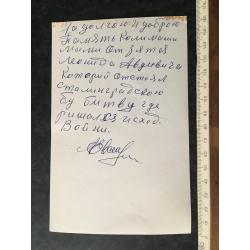 На долгою и доброю
память Коли маши
мами от зятя
Леонида Авдеевича
который отстоял
сталинградскою
бу битву где
ришалсз исход.
Войни.